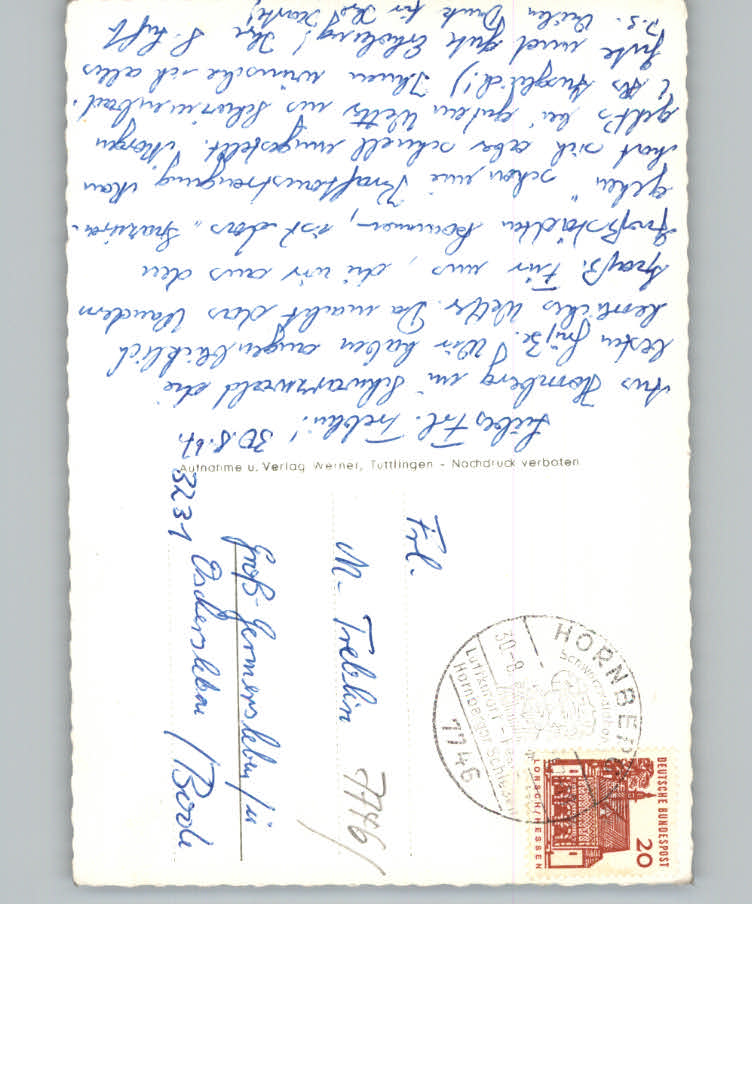 Liebes Frl. Treblin! 30.8.67.
Aus Hornberg im Schwarzwald die
besten Grüße. Wir haben augenblicklich
herrliches Wetter. Da macht das Wandern
Spaß. Für uns, die wir aus den
Großstädten kommen, ist das „Spazieren-
gehen" schon eine Kraftanstrengung, man
hat sich aber schnell umgestellt. Morgen
geht's bei gutem Wetter ins Schwimmbad.
(Als Ausgleich!) Ihnen wünsche ich alles
Gute und gute Erholung! Ihr
P.S. Vielen Dank für Ihre Karte!
Aufnahme u. Verlag Werner, Tuttlingen - Nachdruck verboten
Frl.
M. Treblin
Groß-Germersleben/ü
3231 Oschersleben / Bode
7746/
HORNBERG
30.-8.
Luftkurort
Hornberger Schießen
7746
DEUTSCHE BUNDESPOST
20
LORSCH/HESSEN